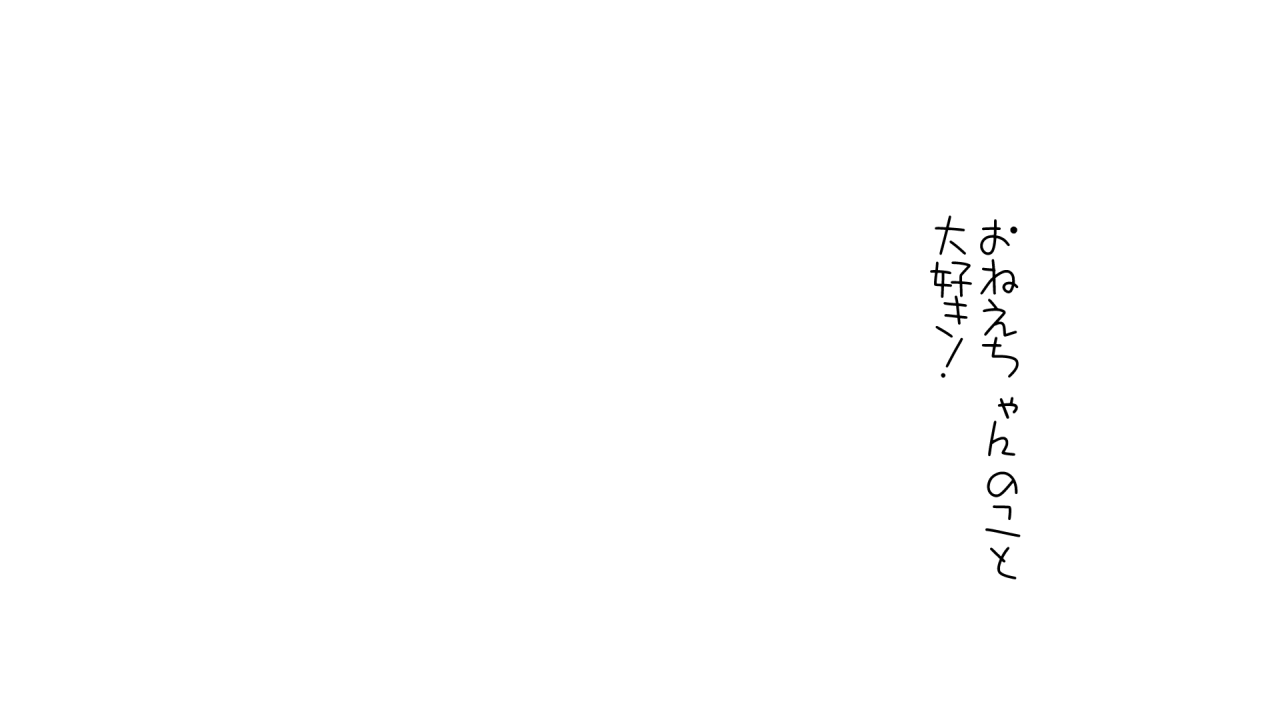 おねえちゃんのこと
大好き!